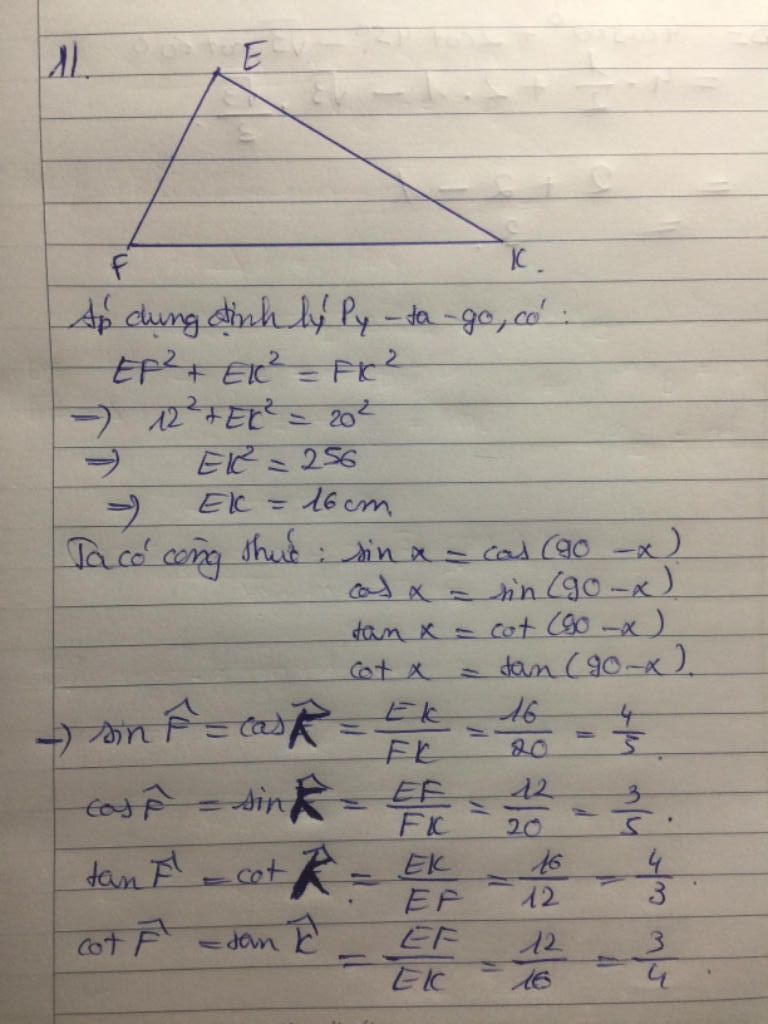 11.
E
F
K.
Áp dụng định lý Py-ta-go, có:
EF² + EK² = FK²
=> 12² + EK² = 20²
=> EK² = 256
=> EK = 16 cm
Ta có công thức: sin x = cos(90 - x)
cos x = sin(90 - x)
tan x = cot(90 - x)
cot x = tan(90 - x).
-) sin F̂ = cos K̂ = EK/FK = 16/20 = 4/5.
cos F̂ = sin K̂ = EF/FK = 12/20 = 3/5.
tan F̂ = cot K̂ = EK/EF = 16/12 = 4/3.
cot F̂ = tan K̂ = EF/EK = 12/16 = 3/4.